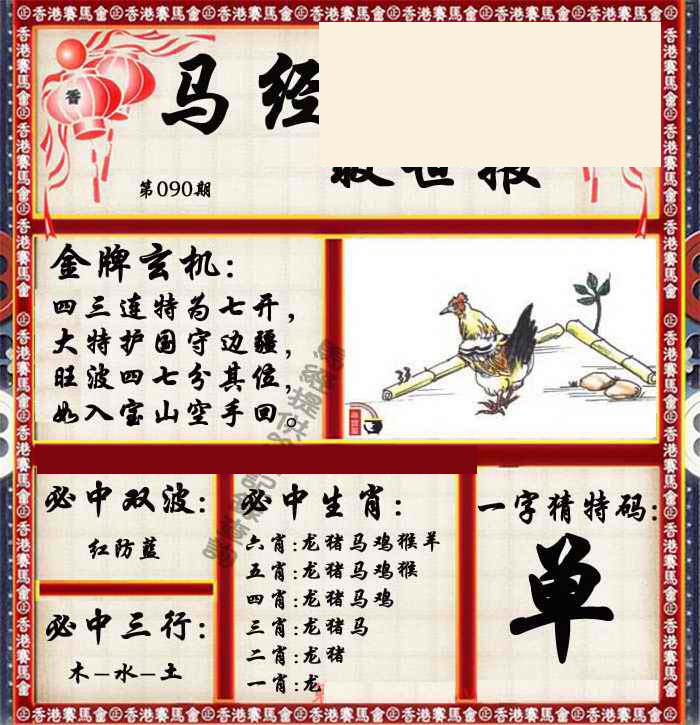 香港賽馬會
香
马经
救世报
第090期
金牌玄机:
四三连特为七开，
大特护国守边疆，
旺波四七分其位，
如入宝山空手回。
必中双波:
红防蓝
必中三行:
木–水–土
必中生肖:
六肖:龙猪马鸡猴羊
五肖:龙猪马鸡猴
四肖:龙猪马鸡
三肖:龙猪马
二肖:龙猪
一肖:龙
一字猜特码:
单